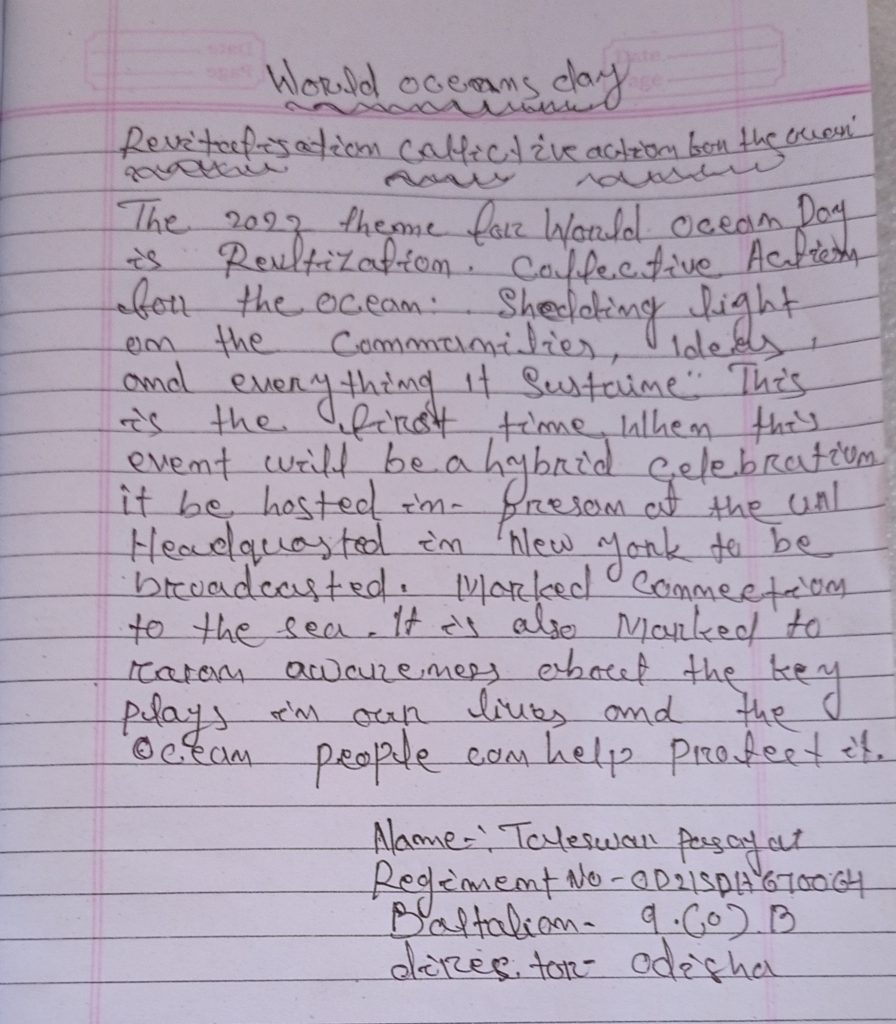 Date
Page
Date
Page
World oceans day
Revitaslisation callective action bon the ocean
The 2022 theme for World Ocean Day
is Reultization. Collective Action
for the ocean: Shedding light
on the Communities, Ideas,
and everything it Sustaime" This
is the first time When this
event will be a hybrid celebration
it be hosted in- Preson at the UN
Headquasted in New york to be
broadcasted. Marked Connection
to the sea. It is also Marked to
awareness about the key
plays in our lives and the
Ocean people can help Protect it.
Name-: Taleswar
Regiment No - OD21SDA670064
Battalion- 9.(O).B
direstor- Odisha